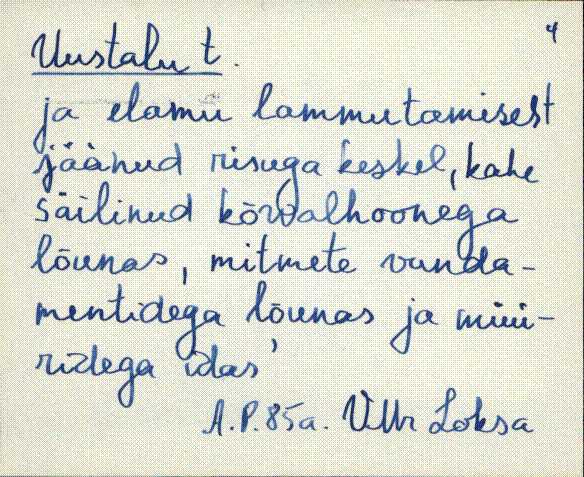 4
Uustalu t.
ja elamu lammutamisest
jäänud risuga keskel, kahe
säilinud kõrvalhoonega
lõunas, mitmete vunda-
mentidega lõunas ja müü-
ridega idas
A.P. 85a. VMr Loksa